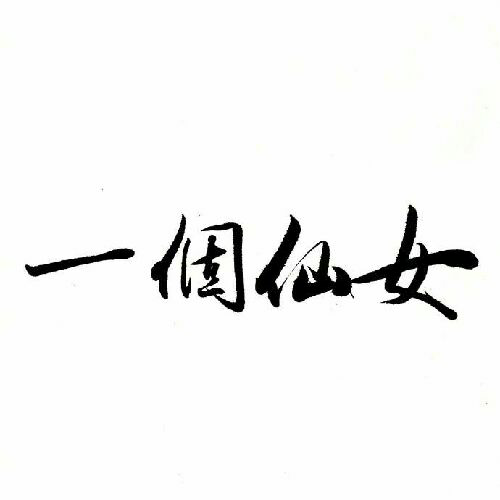 一個仙女